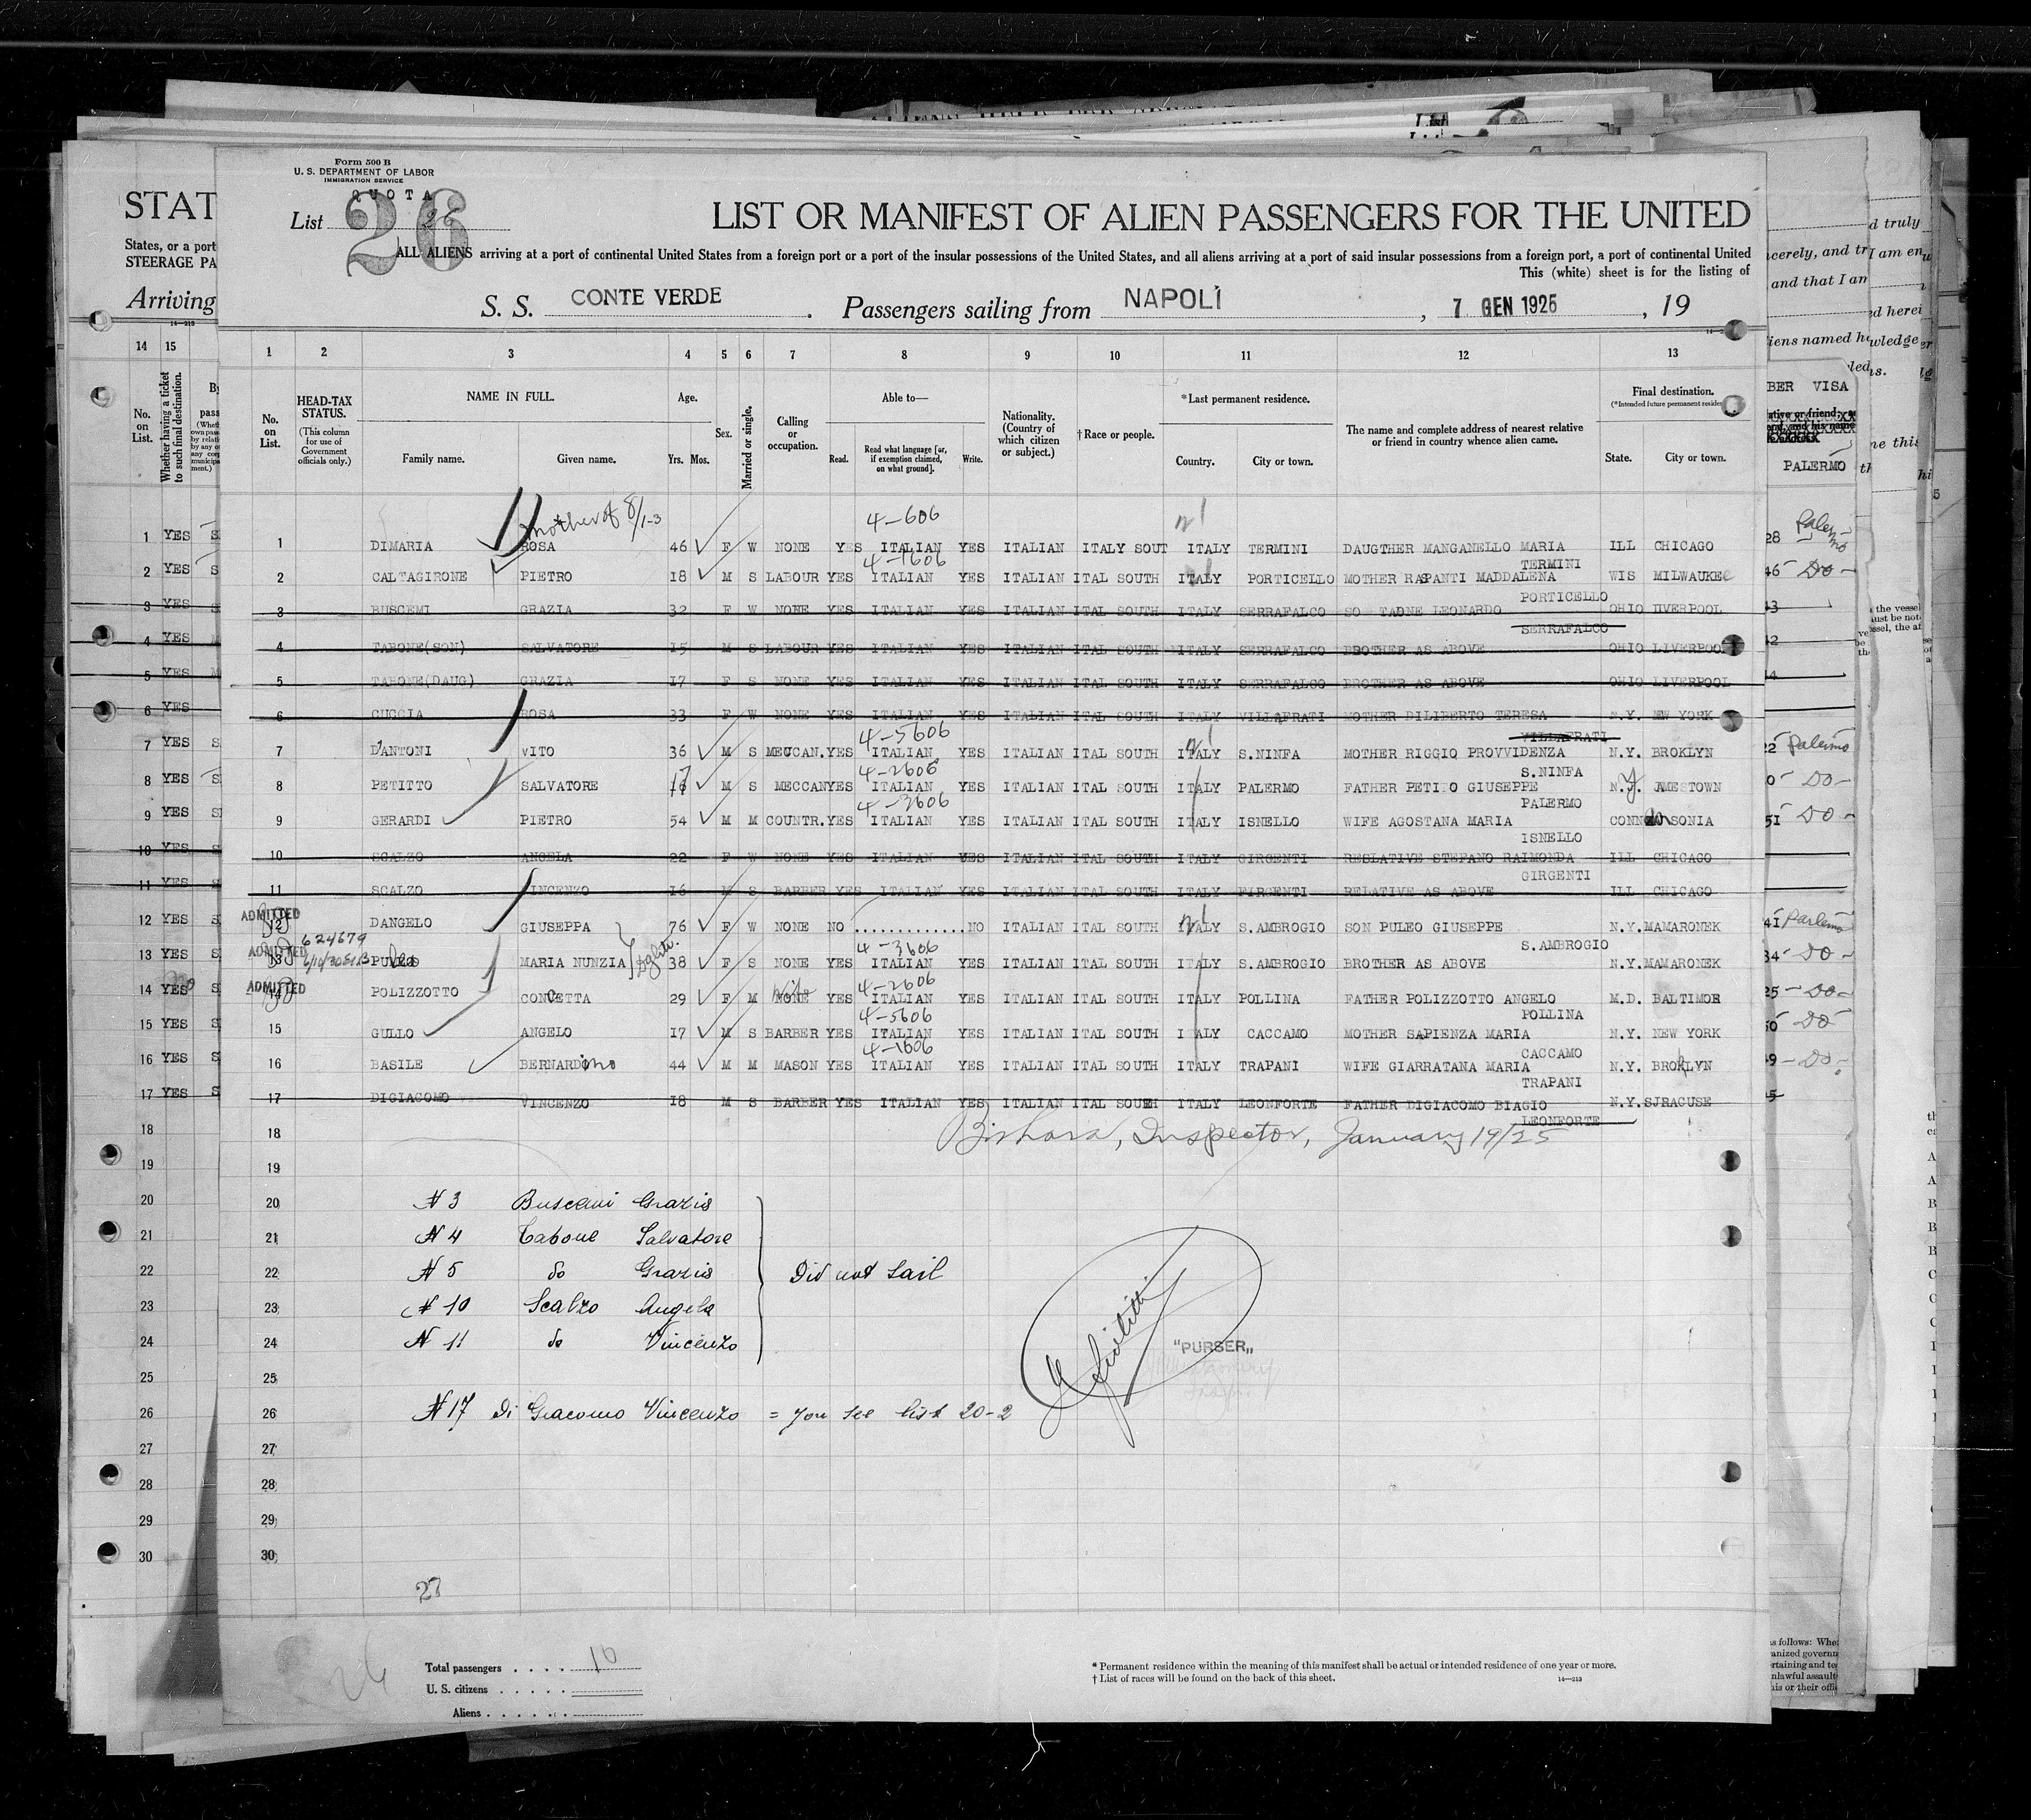 Form 500 B
U. S. DEPARTMENT OF LABOR
IMMIGRATION SERVICE
QUOTA
List 26
26
LIST OR MANIFEST OF ALIEN PASSENGERS FOR THE UNITED
ALL ALIENS arriving at a port of continental United States from a foreign port or a port of the insular possessions of the United States, and all aliens arriving at a port of said insular possessions from a foreign port, a port of continental United
This (white) sheet is for the listing of
S. S. CONTE VERDE . Passengers sailing from NAPOLI , 7 GEN 1925 , 19
1 2 3 4 5 6 7 8 9 10 11 12 13
No. on List.
HEAD-TAX STATUS.
(This column for use of Government officials only.)
NAME IN FULL.
Family name. Given name.
Age.
Yrs. Mos.
Sex.
Married or single.
Calling or occupation.
Able to—
Read. Read what language [or, if exemption claimed, on what ground]. Write.
Nationality. (Country of which citizen or subject.)
†Race or people.
*Last permanent residence.
Country. City or town.
The name and complete address of nearest relative or friend in country whence alien came.
Final destination.
(*Intended future permanent residence)
State. City or town.
mother of 8/1-3
4-606
1 DIMARIA ROSA 46 F W NONE YES ITALIAN YES ITALIAN ITALY SOUT ITALY TERMINI DAUGTHER MANGANELLO MARIA ILL CHICAGO
TERMINI
4-1606
2 CALTAGIRONE PIETRO 18 M S LABOUR YES ITALIAN YES ITALIAN ITAL SOUTH ITALY PORTICELLO MOTHER RAPANTI MADDALENA WIS MILWAUKEE
PORTICELLO
3 BUSCEMI GRAZIA 32 F W NONE YES ITALIAN YES ITALIAN ITAL SOUTH ITALY SERRAFALCO SO TABNE LEONARDO OHIO IIVERPOOL
SERRAFALCO
4 TABONE(SON) SALVATORE 15 M S LABOUR YES ITALIAN YES ITALIAN ITAL SOUTH ITALY SERRAFALCO BROTHER AS ABOVE OHIO LIVERPOOL
5 TABONE(DAUG) GRAZIA 17 F S NONE YES ITALIAN YES ITALIAN ITAL SOUTH ITALY SERRAFALCO BROTHER AS ABOVE OHIO LIVERPOOL
6 CUCCIA ROSA 33 F W NONE YES ITALIAN YES ITALIAN ITAL SOUTH ITALY VILLAFRATI MOTHER DILIBERTO TERESA N.Y. EW YORK
VILLAFRATI
4-5606
7 D'ANTONI VITO 36 M S MECCAN. YES ITALIAN YES ITALIAN ITAL SOUTH ITALY S.NINFA MOTHER RIGGIO PROVVIDENZA N.Y. BROKLYN
S.NINFA
4-2606
8 PETITTO SALVATORE 17 M S MECCAN YES ITALIAN YES ITALIAN ITAL SOUTH ITALY PALERMO FATHER PETITO GIUSEPPE N.Y. JAMESTOWN
PALERMO
4-3606
9 GERARDI PIETRO 54 M M COUNTR. YES ITALIAN YES ITALIAN ITAL SOUTH ITALY ISNELLO WIFE AGOSTANA MARIA CONN SONIA
ISNELLO
10 SCALZO ANGELA 22 F W NONE YES ITALIAN YES ITALIAN ITAL SOUTH ITALY GIRGENTI RESLATIVE STEPANO RAIMONDA ILL CHICAGO
GIRGENTI
11 SCALZO VINCENZO 16 M S BARBER YES ITALIAN YES ITALIAN ITAL SOUTH ITALY FIRGENTI RELATIVE AS ABOVE ILL CHICAGO
ADMITTED
12 DANGELO GIUSEPPA 76 F W NONE NO .............NO ITALIAN ITAL SOUTH ITALY S.AMBROGIO SON PULEO GIUSEPPE N.Y. MAMARONEK
S.AMBROGIO
624679
ADMITTED
4-3606
13 PULEO MARIA NUNZIA 38 F S NONE YES ITALIAN YES ITALIAN ITAL SOUTH ITALY S.AMBROGIO BROTHER AS ABOVE N.Y. MAMARONEK
ADMITTED
wife 4-2606
14 POLIZZOTTO CONCETTA 29 F M NONE YES ITALIAN YES ITALIAN ITAL SOUTH ITALY POLLINA FATHER POLIZZOTTO ANGELO M.D. BALTIMOR
POLLINA
4-5606
15 GULLO ANGELO 17 M S BARBER YES ITALIAN YES ITALIAN ITAL SOUTH ITALY CACCAMO MOTHER SAPIENZA MARIA N.Y. NEW YORK
CACCAMO
4-1606
16 BASILE BERNARDino 44 M M MASON YES ITALIAN YES ITALIAN ITAL SOUTH ITALY TRAPANI WIFE GIARRATANA MARIA N.Y. BROKLYN
TRAPANI
17 DIGIACOMO VINCENZO 18 M S BARBER YES ITALIAN YES ITALIAN ITAL SOUTH ITALY LEONFORTE FATHER DIGIACOMO BIAGIO N.Y. SJRACUSE
LEONFORTE
18 Bishara, Inspector, January 19/25
19
20 N 3 Buscemi Grazia
21 N 4 Tabone Salvatore
22 N 5 do Grazia Did not sail
23 N 10 Scalzo Angela
24 N 11 do Vincenzo
"PURSER"
25
26 N 17 Di Giacomo Vincenzo = you see list 20-2
27
28
29
30
27
26
Total passengers . . . . 10
U. S. citizens . . . . .
Aliens . . . . . .
* Permanent residence within the meaning of this manifest shall be actual or intended residence of one year or more.
† List of races will be found on the back of this sheet.
14—213
STAT
States, or a port
STEERAGE PA
Arriving
14—213
14 15
No. on List.
Whether having a ticket to such final destination.
1 YES
2 YES
3 YES
4 YES
5 YES
6 YES
7 YES
8 YES
9 YES
10 YES
11 YES
12 YES
13 YES
14 YES
15 YES
16 YES
17 YES
18
19
20
21
22
23
24
25
26
27
28
29
30
BER VISA
PALERMO
28 Palermo
46 Do
43
42
44
22 Palermo
0 Do
51 Do
41 Parlermo
34 Do
25 Do
50 Do
49 Do
45
d truly
I am en
and that I am